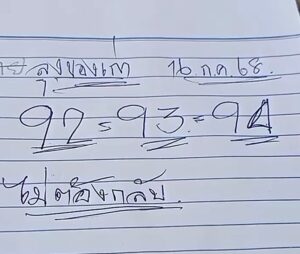 ลุงของเก่า 16.ก.ค.68.
97=93=94
ไม่ต้องกลับ.